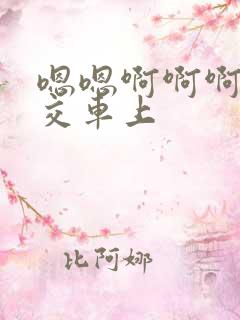 嗯嗯啊啊啊
交车上
比阿娜